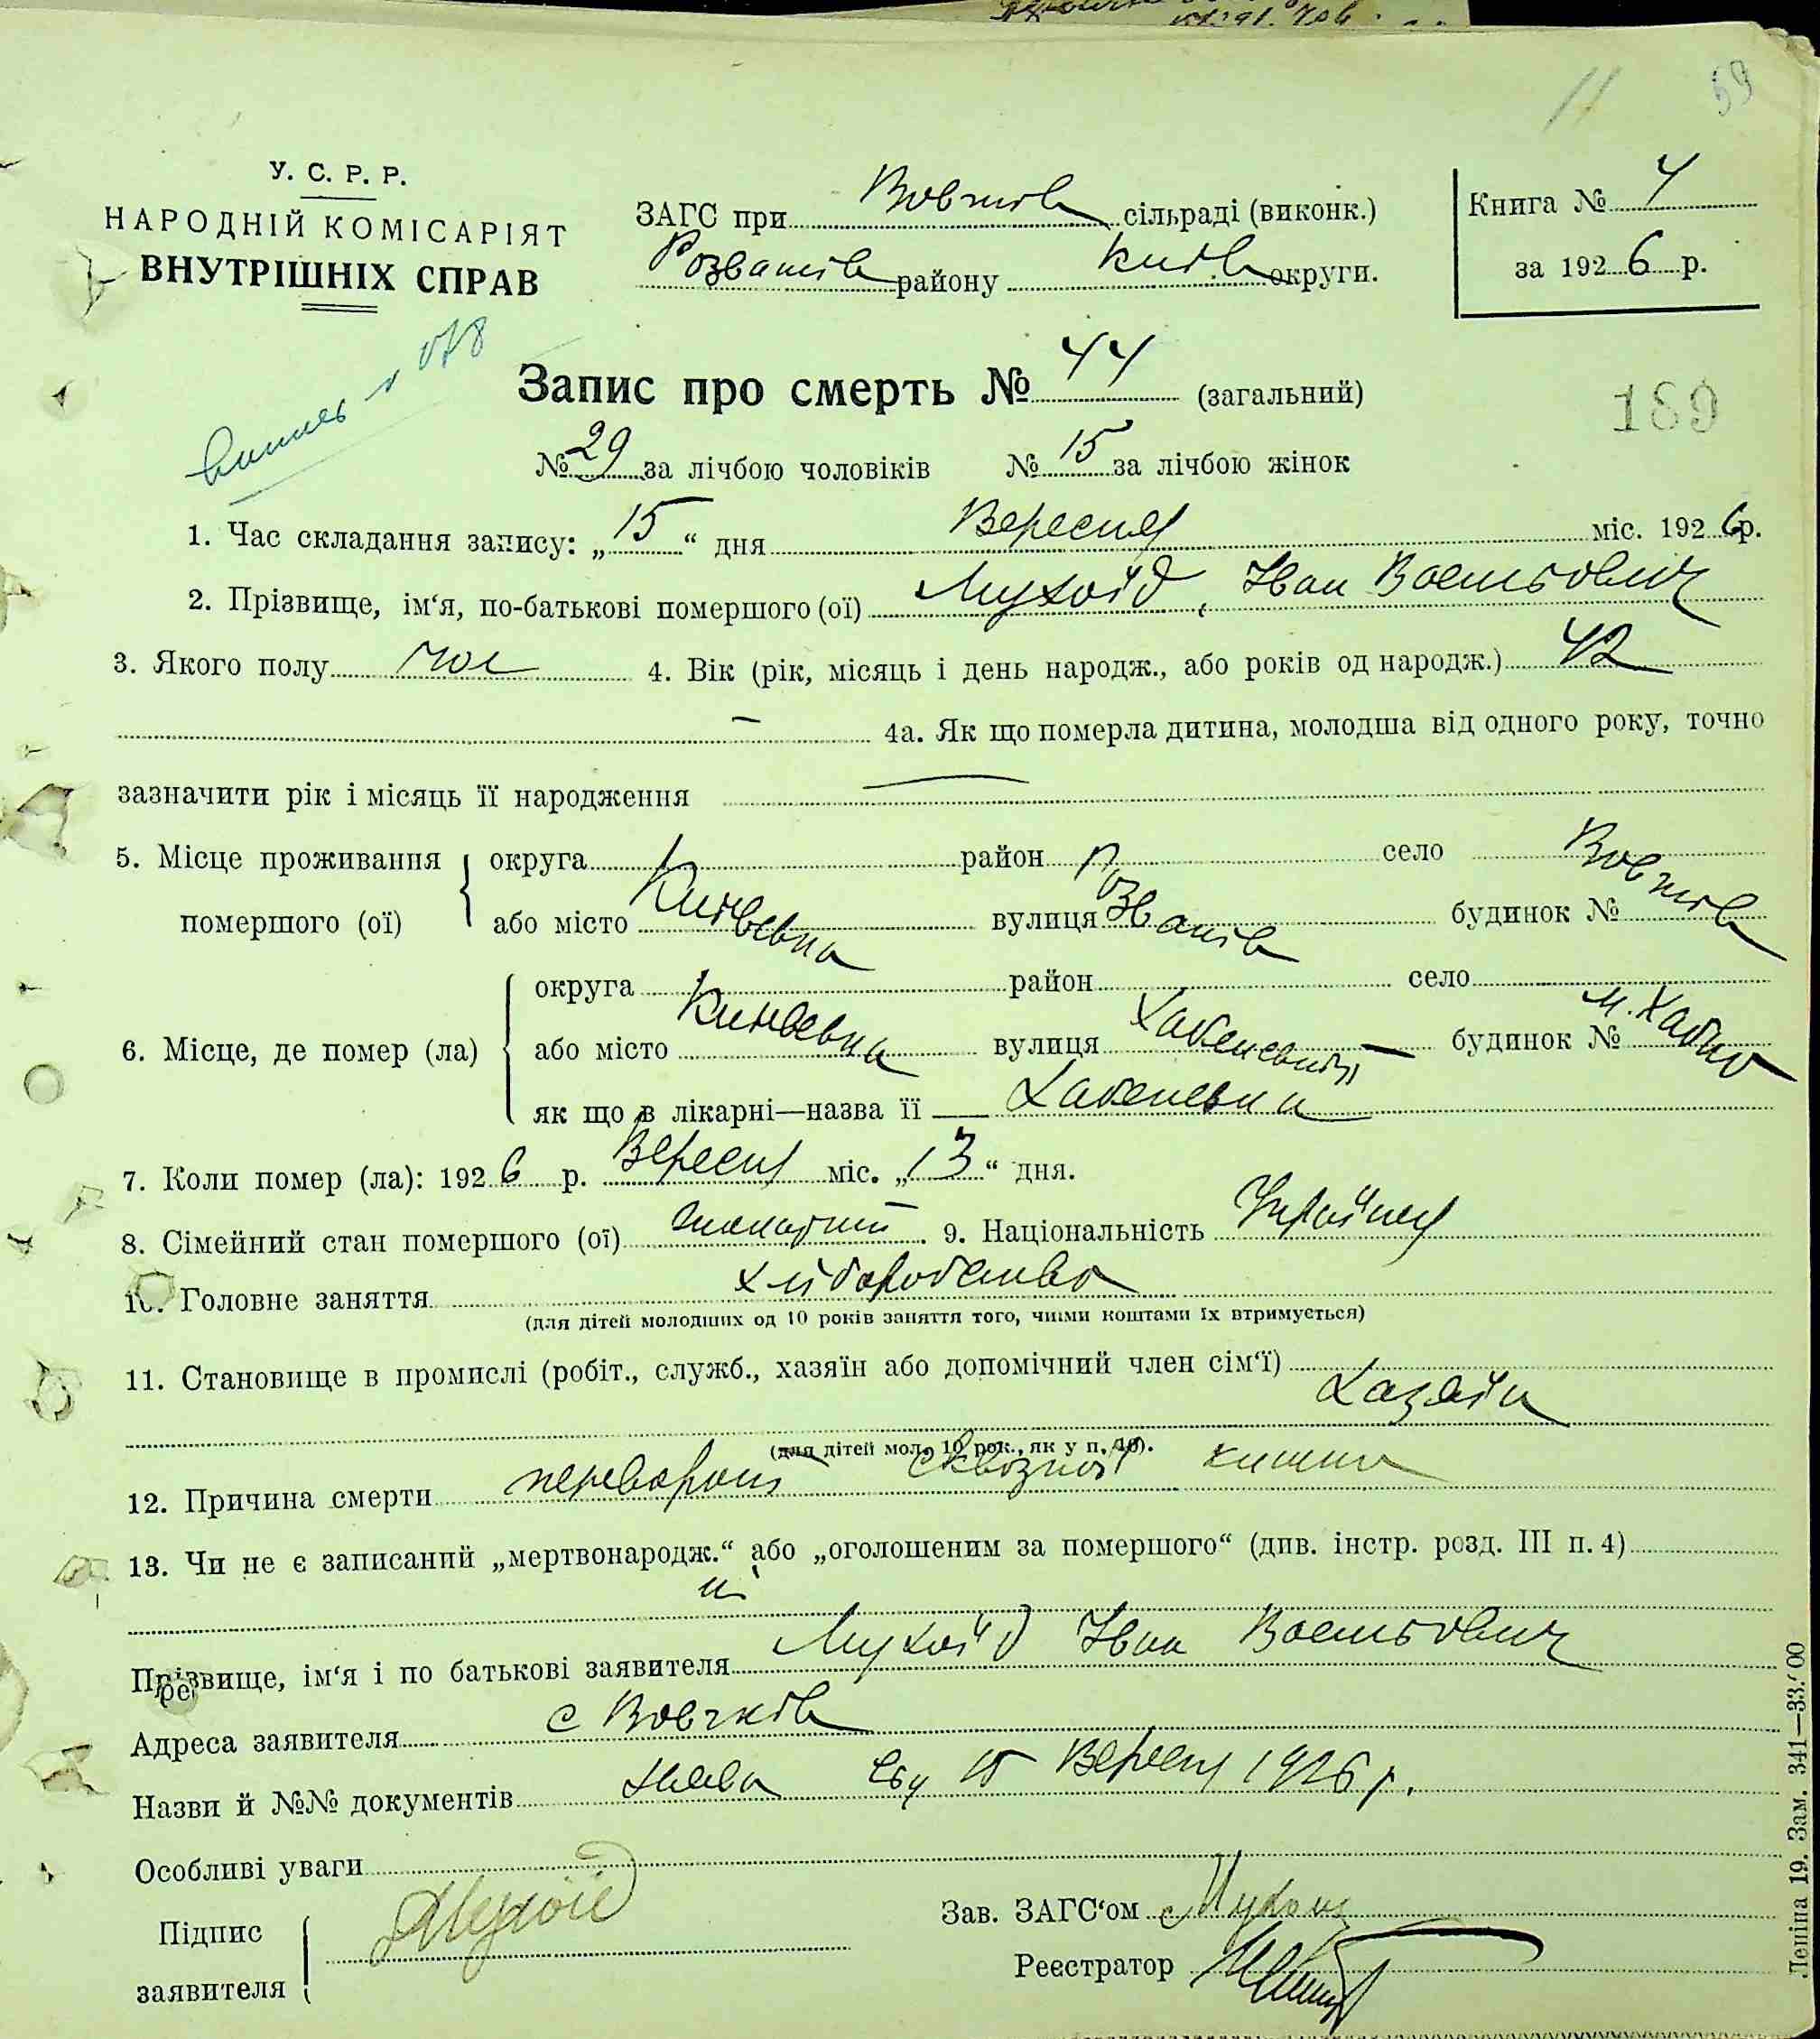 11 59
У. С. Р. Р.
НАРОДНІЙ КОМІСАРІЯТ
ВНУТРІШНІХ СПРАВ
ЗАГС при Вовчків сільраді (виконк.)
Розважів району Київ округи.
Книга № 4
за 1926 р.
Запис про смерть № 44 (загальний)
189
№ 29 за лічбою чоловіків № 15 за лічбою жінок
1. Час складання запису: „15“ дня Вересня міс. 1926 р.
2. Прізвище, ім‘я, по-батькові помершого (ої) Мухоїд, Іван Васильович
3. Якого полу чол 4. Вік (рік, місяць і день народж., або років од народж.) 42
— 4а. Як що померла дитина, молодша від одного року, точно
зазначити рік і місяць її народження —
5. Місце проживання помершого (ої) { округа Київська район Розважів село Вовчків
або місто вулиця будинок №
6. Місце, де помер (ла) { округа Київська район Хабенський село м. Хабно
або місто вулиця — будинок №
як що в лікарні—назва її — Хабенська
7. Коли помер (ла): 1926 р. Вересня міс. „13“ дня.
8. Сімейний стан помершого (ої) 9. Національність Українец
10. Головне заняття хліборобство
(для дітей молодших од 10 років заняття того, чиїми коштами їх втримується)
11. Становище в промислі (робіт., служб., хазяїн або допомічний член сім‘ї)
Хазяїн
(для дітей мол. 10 рок., як у п. 10).
12. Причина смерти кишки
13. Чи не є записаний „мертвонародж.“ або „оголошеним за помершого“ (див. інстр. розд. III п. 4)
ні
Прізвище, ім‘я і по батькові заявителя Мухоїд Іван Васильович
Адреса заявителя с Вовчків
Назви й №№ документів 15 Вересня 1926 р.
Особливі уваги
Підпис заявителя { Мухоїд
Зав. ЗАГС‘ом
Реєстратор
Леніна 19. Зам. 341—33.